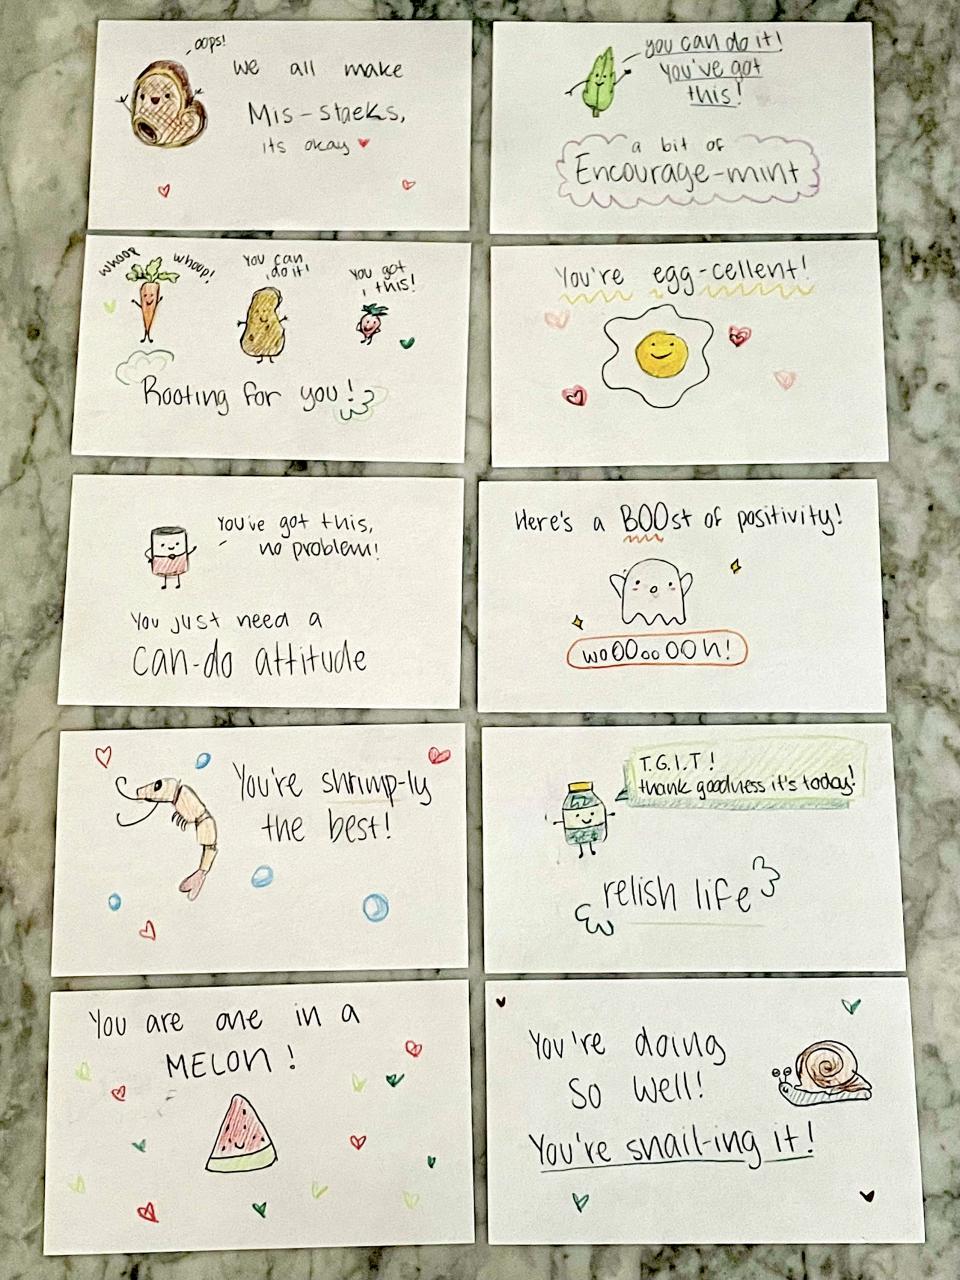 oops!
We all make
Mis-staeks,
its okay
you can do it!
You've got
this!
a bit of
Encourage-mint
whoop whoop!
You can
do it!
You got
this!
Rooting for you!
You're egg-cellent!
You've got this,
no problem!
You just need a
can-do attitude
Here's a BOOst of positivity!
woOOooOOh!
You're shrimp-ly
the best!
T.G.I.T!
thank goodness it's today!
relish life
You are one in a
MELON!
You're doing
So well!
You're snail-ing it!